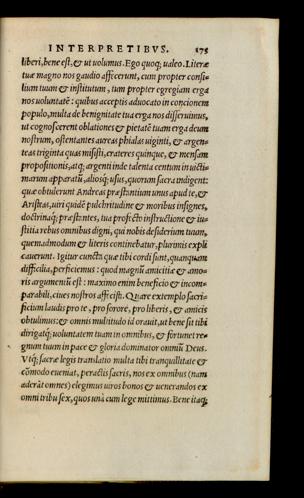 INTERPRETIBVS. 175
liberi, bene est, & ut uolumus. Ego quoq; ualeo. Literæ
tuæ magno nos gaudio affecerunt, cum propter consi-
lium tuum & institutum, tum propter egregiam erga
nos uoluntatẽ: quibus acceptis aduocato in concionem
populo, multa de benignitate tua erga nos disseruimus,
ut cognoscerent oblationes & pietatẽ tuam erga deum
nostrum, ostentantes aureas phialas uiginti, & argen-
teas triginta quas misisti, crateres quinque, & mensam
propositionis, atq; argenti inde talenta centum in uicti-
marum apparatũ, aliosq; usus, quorum sacra indigent:
quæ obtulerunt Andreas præstantium unus apud te, &
Aristeas, uiri quidẽ pulchritudine & moribus insignes,
doctrinaq; præstantes, tua profecto instructione & iu-
stitia rebus omnibus digni, qui nobis desiderium tuum,
quemadmodum & literis continebatur, plurimis expli
cauerunt. Igitur cuncta quæ tibi cordi sunt, quanquam
difficilia, perficiemus: quod magnũ amicitiæ & amo-
ris argumentũ est: maximo enim beneficio & incom-
parabili, ciues nostros affecisti. Quare extemplo sacri-
ficium laudis pro te, pro sorore, pro liberis, & amicis
obtulimus: & omnis multitudo id orauit, ut bene sit tibi
dirigatq; uoluntatem tuam in omnibus, & fortunet re-
gnum tuum in pace & gloria dominator omniũ Deus.
Vtq; sacræ legis translatio multa tibi tranquillitate &
cõmodo eueniat, peractis sacris, nos ex omnibus (nam
aderãt omnes) elegimus uiros bonos & uenerandos ex
omni tribu sex, quos unà cum lege mittimus. Bene itaq;